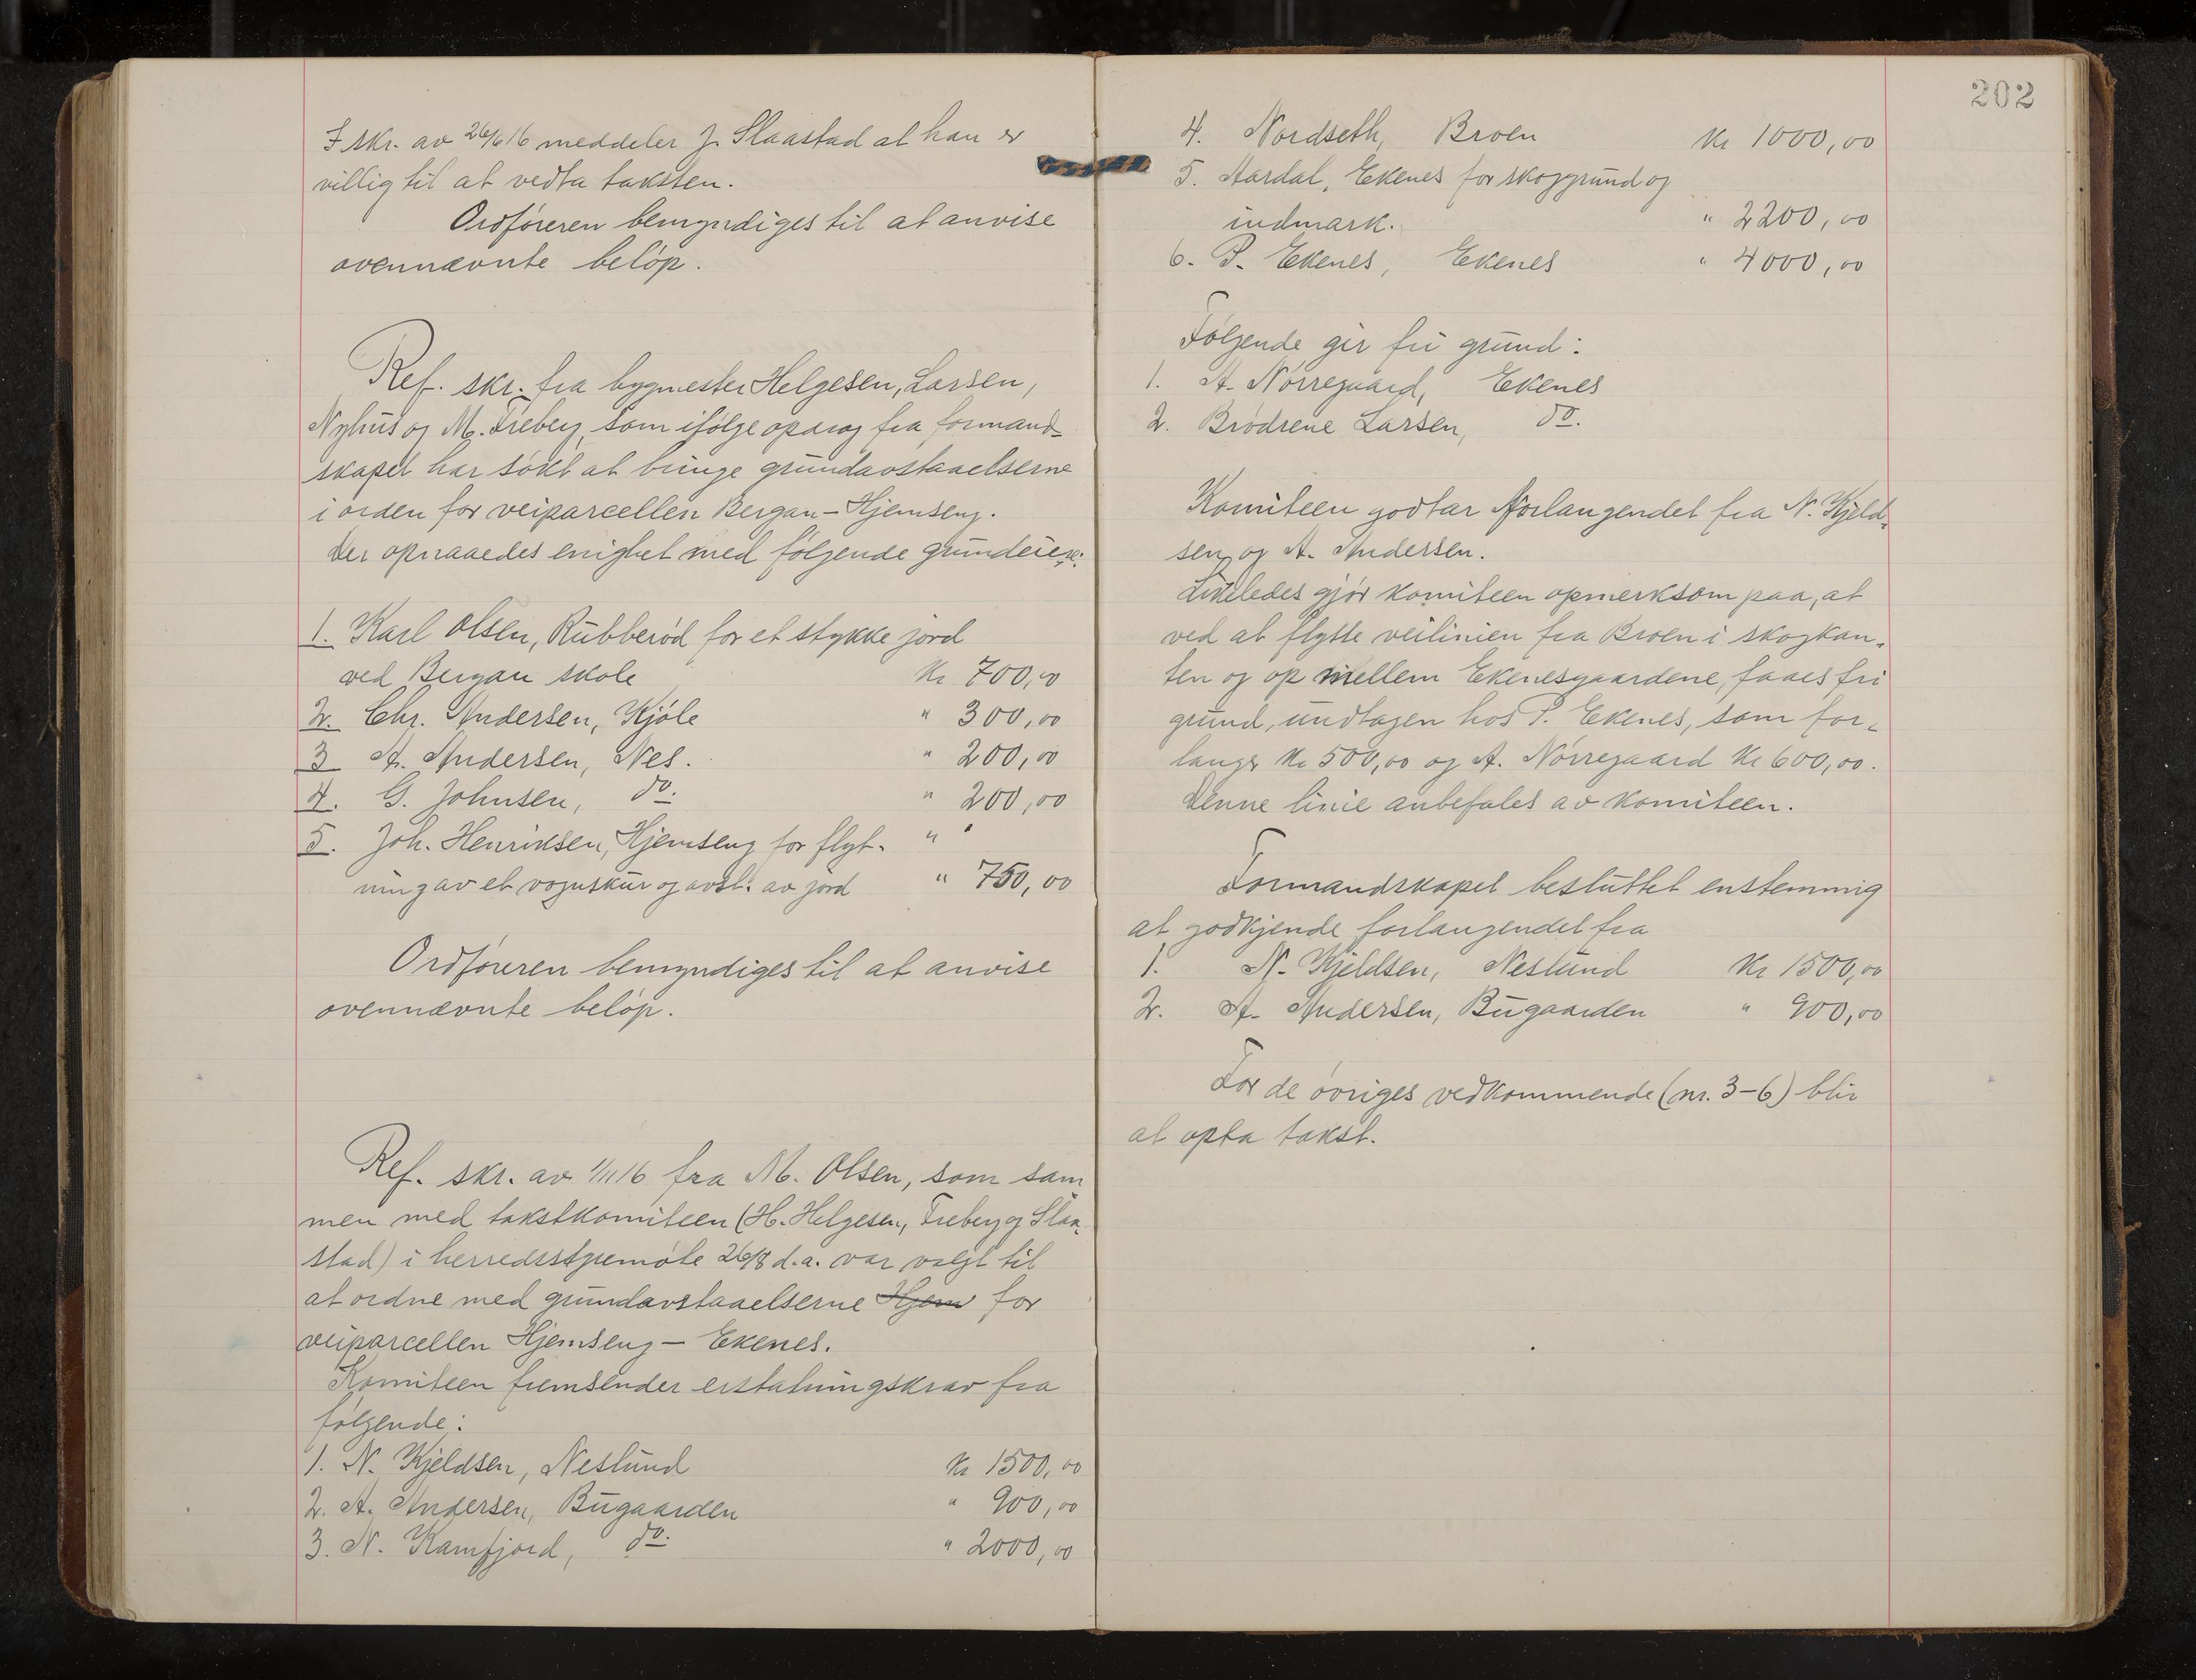 I skr. av 26/6 16 meddeler J. Slaastad at han er
villig til at vedta taksten.
Ordføreren bemyndiges til at anvise
ovennævnte beløp.
Ref. skr. fra bygmester Helgesen, Larsen,
Nyhus og M. Freberg, som ifølge opdrag fra formand-
skapet har søkt at bringe grundavstaaelserne
i orden for veiparcellen Bergan - Hjemseng.
Der opnaaedes enighet med følgende grundeiere:
1. Karl Olsen, Rubberød for et stykke jord
ved Bergan skole Kr 700,00
2. Chr. Andersen, Kjøle " 300,00
3 A. Andersen, Nes. " 200,00
4. G. Johnsen, do. " 200,00
5. Joh. Henriksen, Hjemseng for flyt- "
ning av et vognskur og avst. av jord " 750,00
Ordføreren bemyndiges til at anvise
ovennævnte beløp.
Ref. skr. av 1/11 16 fra M. Olsen, som sam
men med takstkomiteen (H. Helgesen, Freberg og Slaa-
stad) i herredsstyremøte 26/8 d.a. var valgt til
at ordne med grundavstaaelserne Hjem for
veiparcellen Hjemseng - Ekenes.
Komiteen fremsender erstatningskrav fra
følgende:
1. N. Kjeldsen, Neslund Kr 1500,00
2. A. Andersen, Bugaarden " 900,00
3. N. Kamfjord, do. " 2000,00
202
4. Nordseth, Broen Kr 1000,00
5. Aardal, Ekenes for skoggrund og
indmark. " 2200,00
6. P. Ekenes, Ekenes " 4000,00
Følgende gir fri grund:
1. A. Nørregaard, Ekenes
2. Brødrene Larsen, do.
Komiteen godtar forlangendet fra N. Kjeld-
sen og A. Andersen.
Likeledes gjør komiteen opmerksom paa, at
ved at flytte veilinien fra Broen i skogkan-
ten og op mellem Ekenesgaardene, faaes fri
grund, undtagen hos P. Ekenes, som for-
langer Kr 500,00 og A. Nørregaard Kr 600,00.
Denne linie anbefales av komiteen.
Formandskapet besluttet enstemmig
at godkjende forlangendet fra
1. N. Kjeldsen, Neslund Kr 1500,00
2. A. Andersen, Bugaarden " 900,00
For de øvriges vedkommende (nr. 3-6) blir
at opta takst.